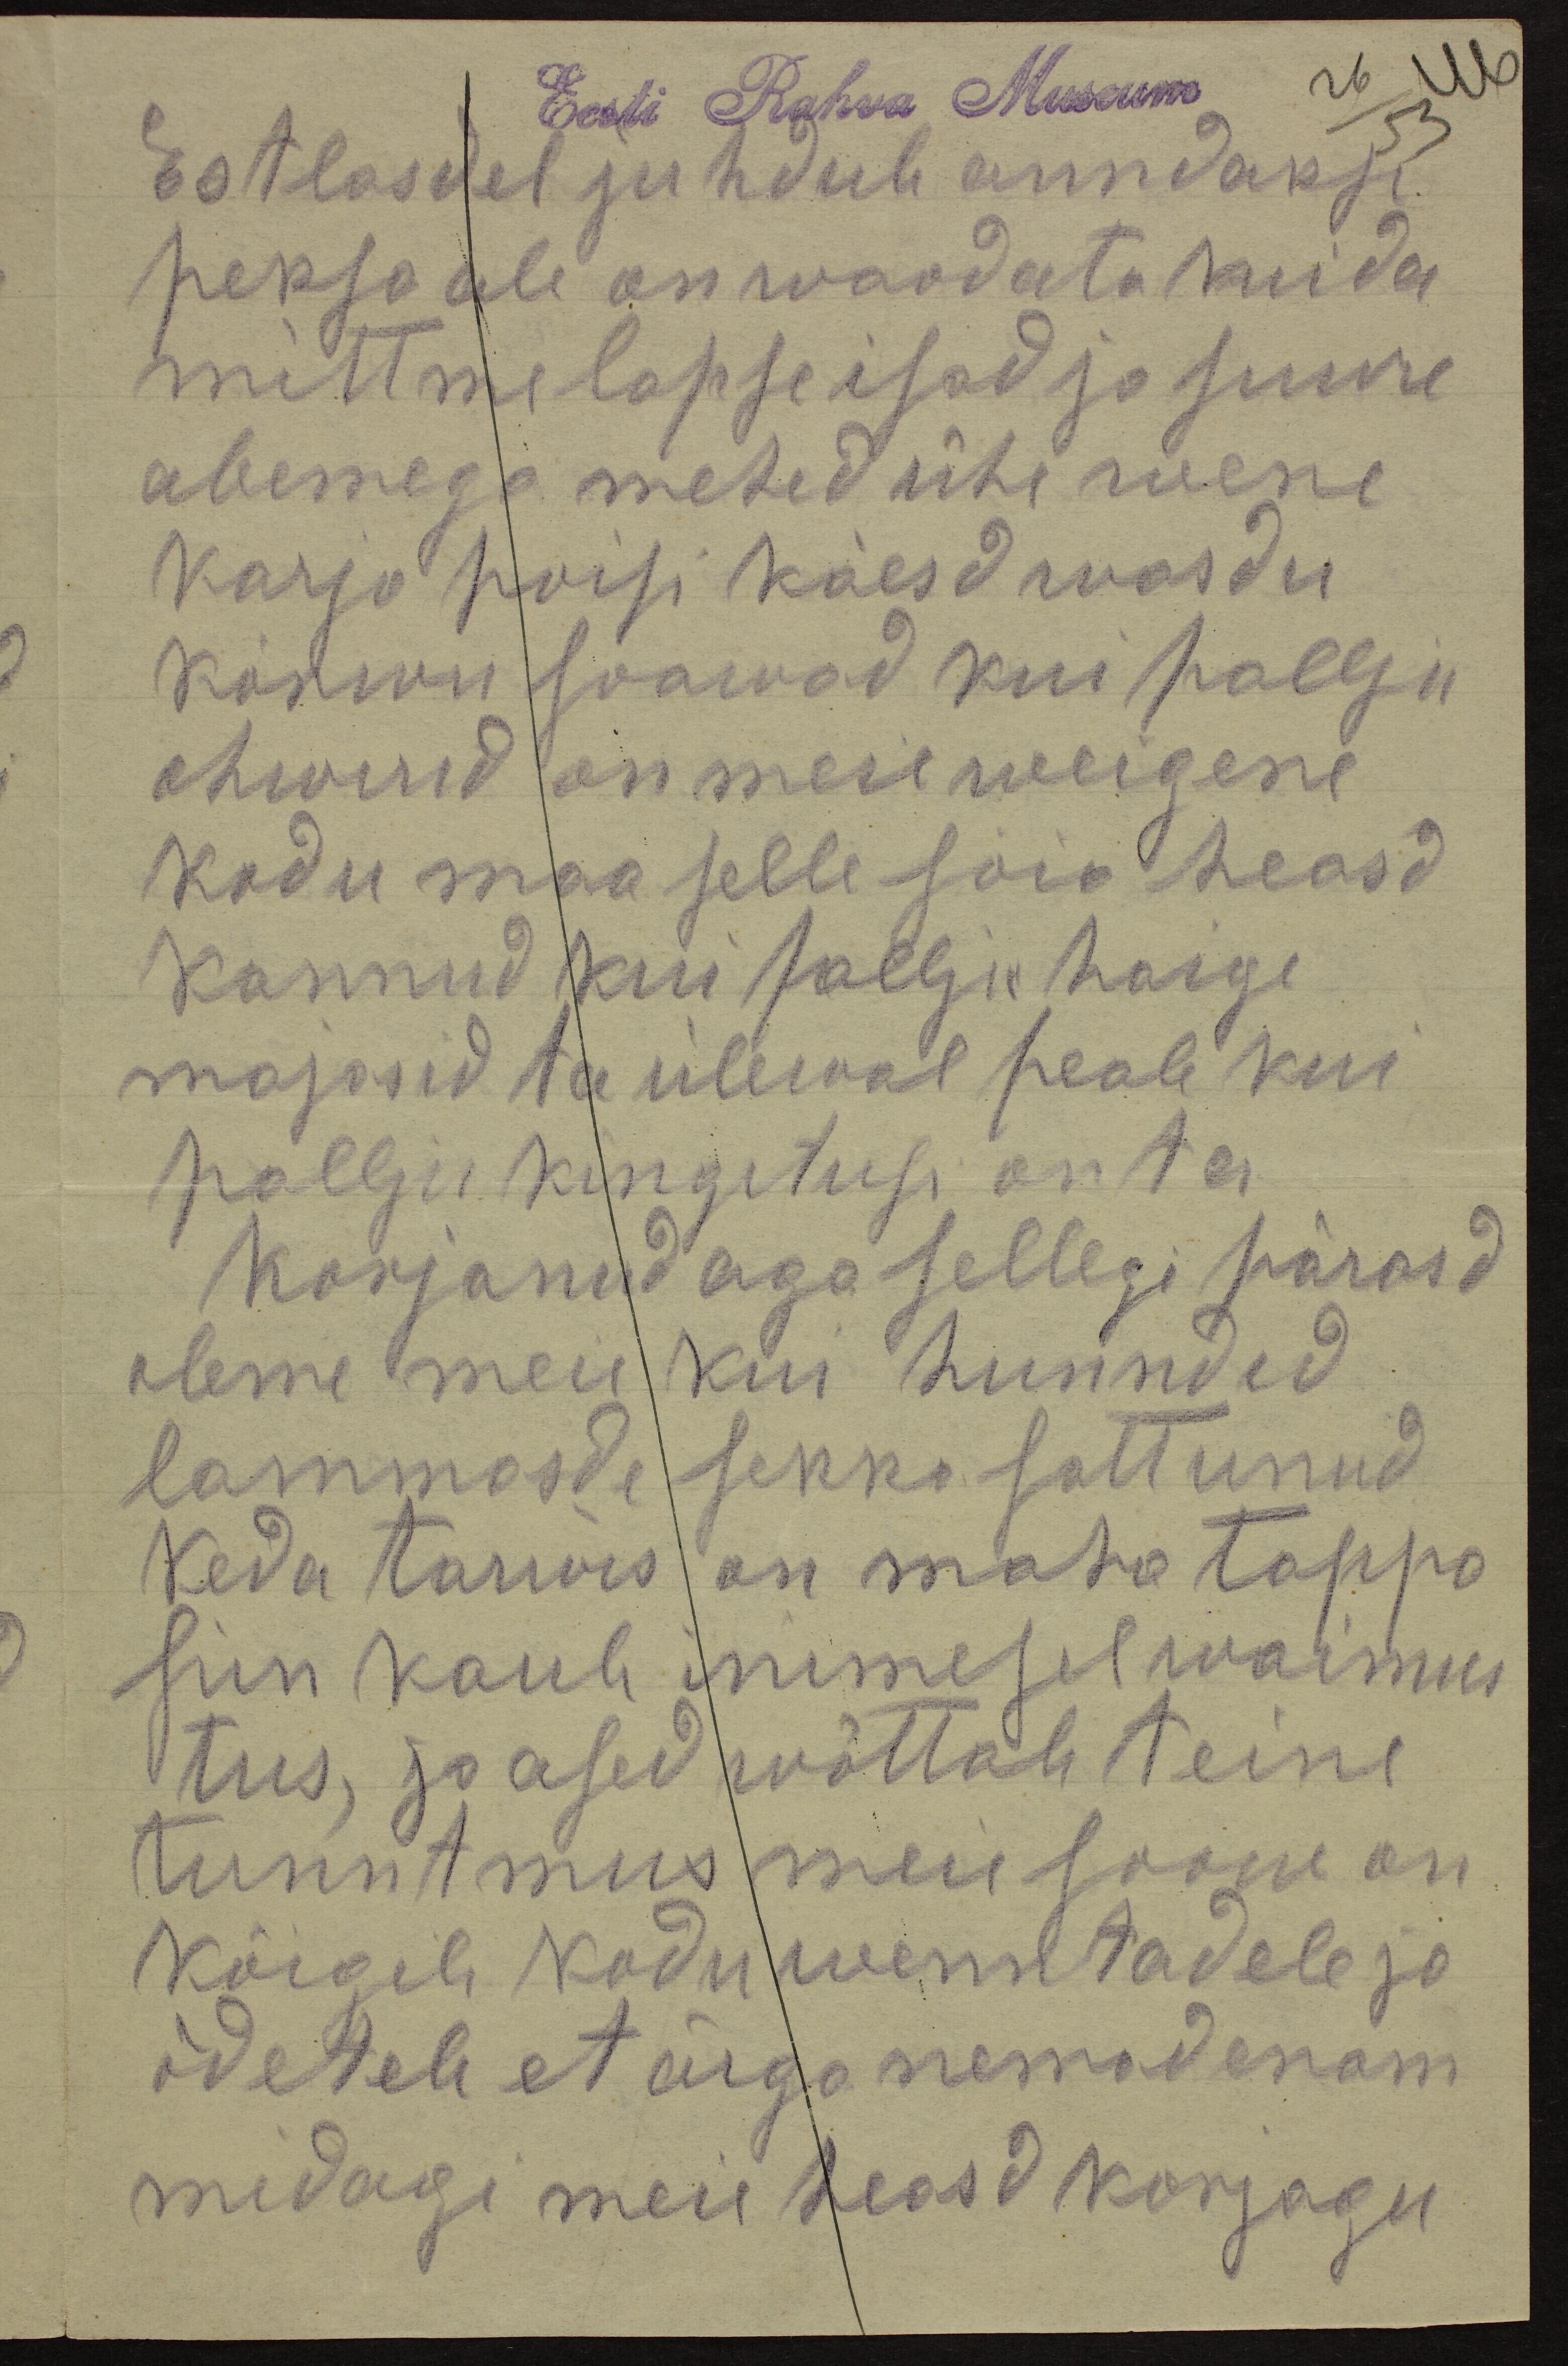 Eesti Rahva Museum
26/53
Estlasdel juhdub anndaksi
peksa ale on waadata kuida
mittme lapse isad ja suure
abemega mehed ühe wene
karja poisi käesd wasdu
kõrwu saawad kui pallju
ohwrid on meie weigene
kodu maa selle sõia heasd
kannud kui pallju haige
majasid ta ülewal peab kui
pallju kingitusi on ta
korjanud aga sellegi pärasd
oleme meie kui hunndid
lammaste sekka sattunud
keda tarwis on maha tappa
siin kaub inimesel waimus
tus, ja ased wõttab teine
tunntmus meie soow on
kõigile kodu wenntadele ja
õdetele et ärga nemad enam
midagi meie heasd korjagu